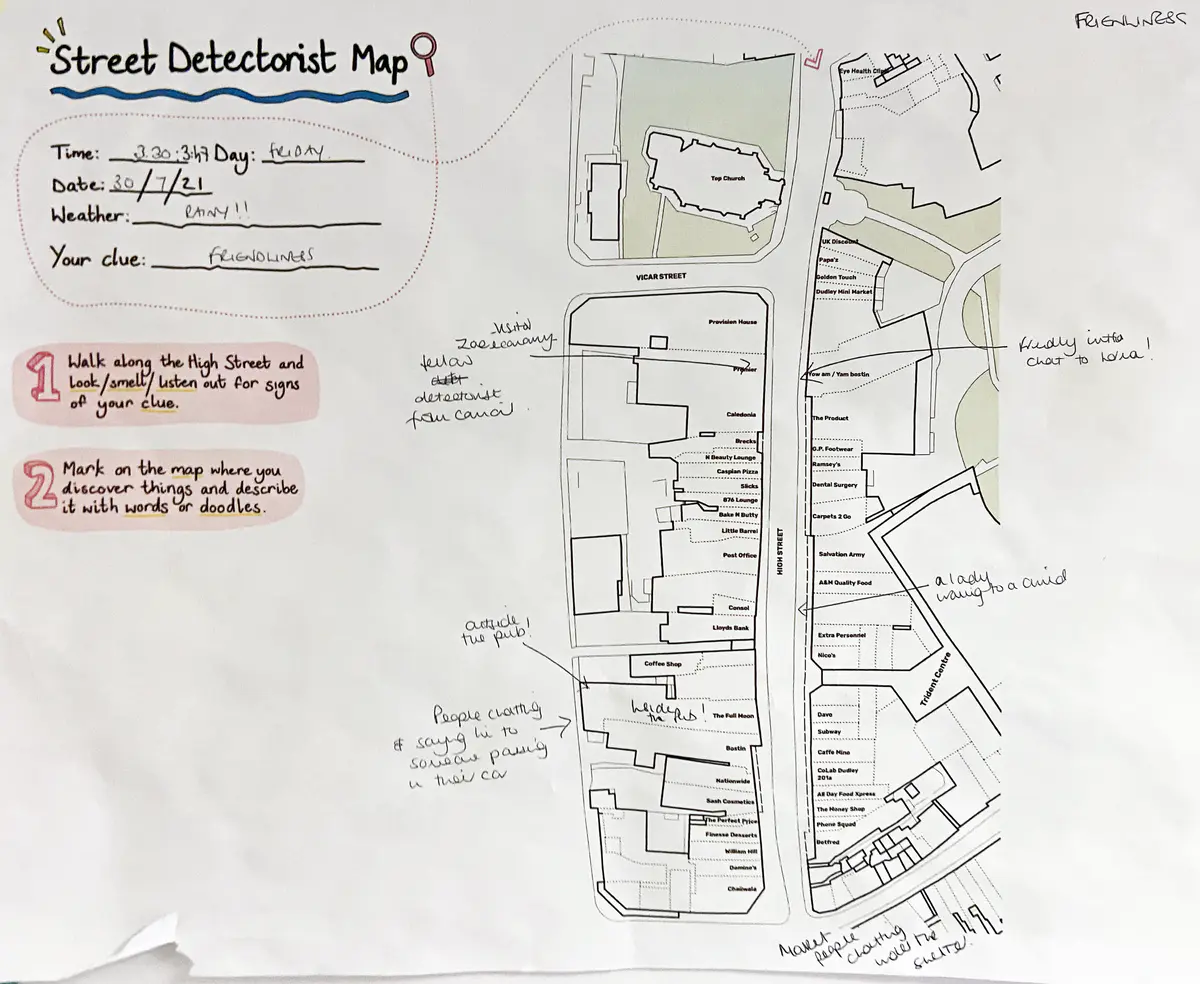 FRIENLINESS
Street Detectorist Map
Time: 3.30 : 3:47 Day: FRIDAY
Date: 30/7/21
Weather: RAINY!!
Your clue: FRIENDLINESS
1 Walk along the High Street and
look/smell/listen out for signs
of your clue.
2 Mark on the map where you
discover things and describe
it with words or doodles.
Eye Health Clinic
Top Church
UK Discount
Pape's
Golden Touch
Dudley Mini Market
VICAR STREET
Provision House
Premier
Caledonia
Brocks
N Beauty Lounge
Caspian Pizza
Slicks
876 Lounge
Bake N Butty
Little Barrel
Post Office
Consol
Lloyds Bank
Coffee Shop
The Full Moon
Bostin
Nationwide
Sash Cosmetics
The Perfect Price
Finesse Desserts
William Hill
Domino's
Chaiiwala
HIGH STREET
Yow am / Yam bostin
The Product
G.P. Footwear
Ramsey's
Dental Surgery
Carpets 2 Go
Salvation Army
A&M Quality Food
Extra Personnel
Nico's
Trident Centre
Dave
Subway
Caffe Mine
CoLab Dudley
201a
All Day Food Xpress
The Money Shop
Phone Squad
Betfred
fellow
detectorist
from
friendly
chat to
a lady
to a
outside
the pub!
inside
the pub!
People chatting
& saying hi to
someone passing
in their car
Market
people
chatting
under the
shelter.